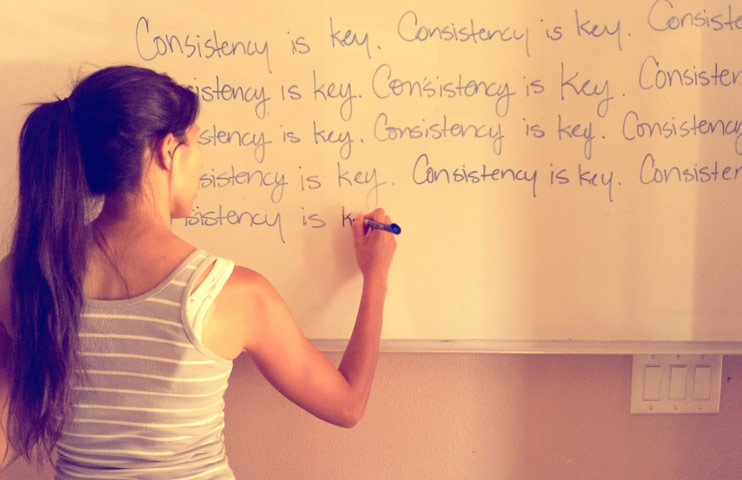 Consistency is key. Consistency is key. Consiste
istency is key. Consistency is Key. Consisten
stency is key. Consistency is key. Consistency
sistency is key. Consistency is key. Consisten
nsistency is k